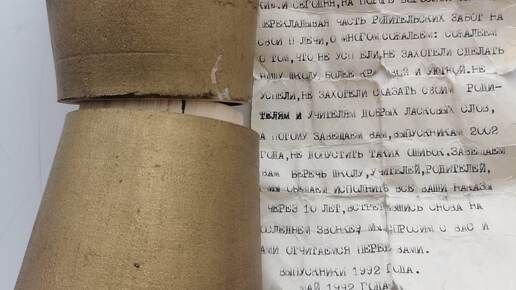 И СЕГОДНЯ, НА ПОРОГЕ
ПЕРЕКЛАДЫВАЯ ЧАСТЬ РОДИТЕЛЬСКИХ ЗАБОТ НА
СВОИ ПЛЕЧИ, О МНОГОМ СОЖАЛЕЕМ: СОЖАЛЕЕМ
О ТОМ, ЧТО НЕ УСПЕЛИ, НЕ ЗАХОТЕЛИ СДЕЛАТЬ
НАШУ ШКОЛУ БОЛЕЕ КРАСИВОЙ И УЮТНОЙ. НЕ
УСПЕЛИ, НЕ ЗАХОТЕЛИ СКАЗАТЬ СВОИМ РОДИ-
ТЕЛЯМ И УЧИТЕЛЯМ ДОБРЫХ ЛАСКОВЫХ СЛОВ,
А ПОТОМУ ЗАВЕЩАЕМ ВАМ, ВЫПУСКНИКАМ 2002
ГОДА, НЕ ДОПУСТИТЬ ТАКИХ ОШИБОК. ЗАВЕЩАЕМ
ВАМ БЕРЕЧЬ ШКОЛУ, УЧИТЕЛЕЙ, РОДИТЕЛЕЙ,
МЫ ОБЕЩАЕМ ИСПОЛНИТЬ ВСЕ ВАШИ НАКАЗЫ
ЧЕРЕЗ 10 ЛЕТ, ВСТРЕТИВШИСЬ СНОВА НА
ПОСЛЕДНЕМ ЗВОНКЕ, МЫ СПРОСИМ С ВАС И
САМИ ОТЧИТАЕМСЯ ПЕРЕД ВАМИ.
ВЫПУСКНИКИ 1992 ГОДА.
МАЙ 1992 ГОДА.